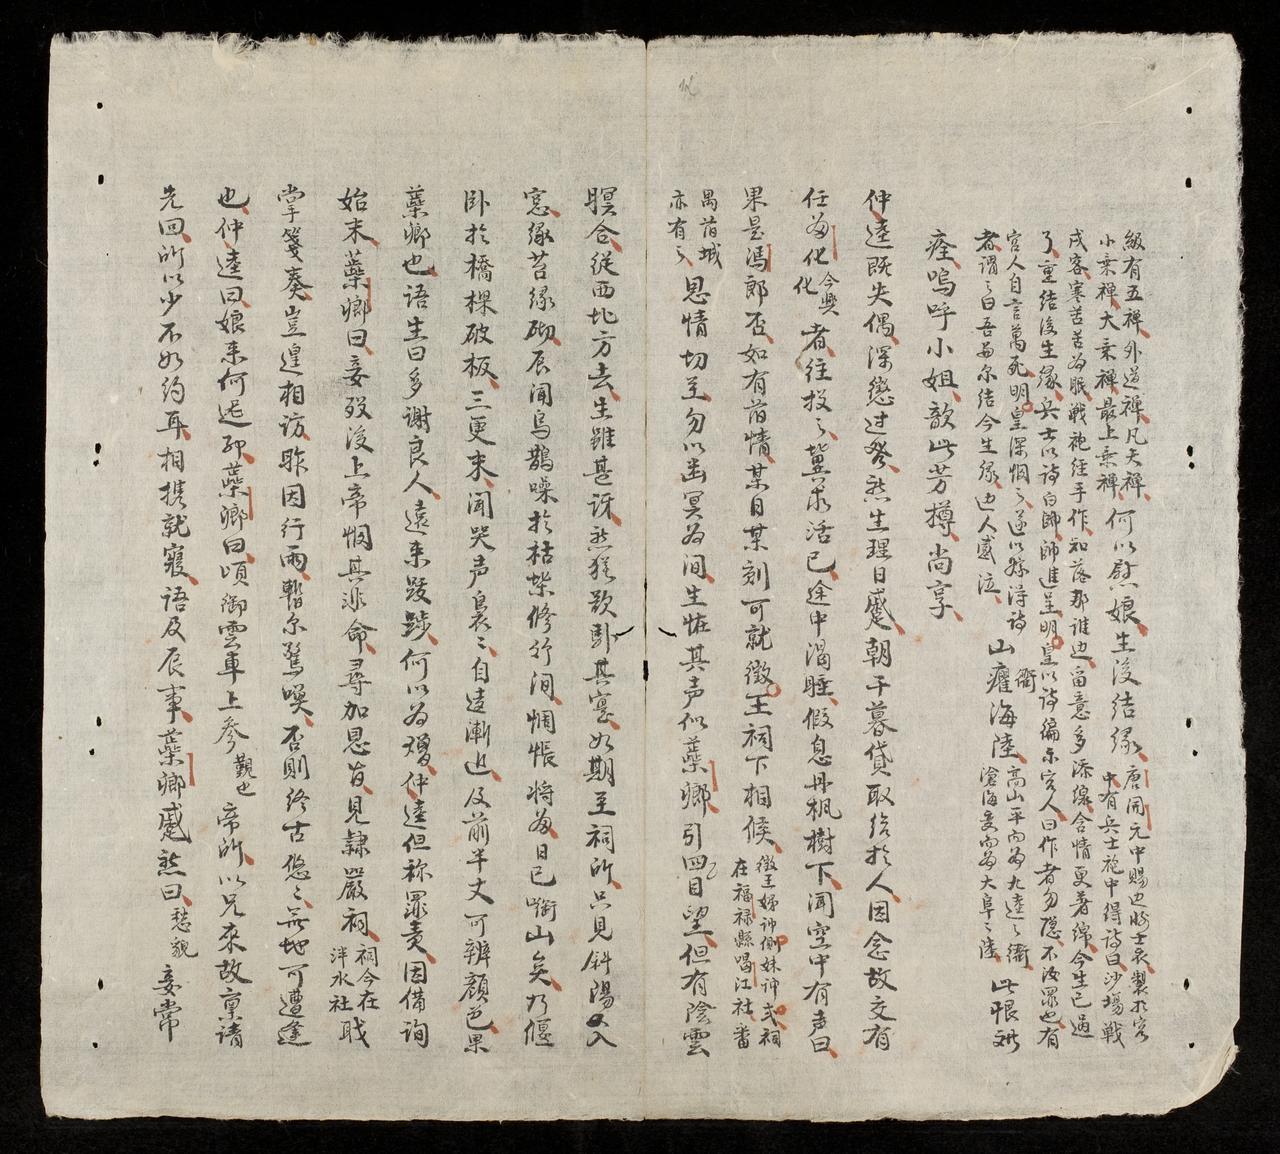 級有五禪外道禪凡夫禪
小乘禪大乘禪最上乘禪
何以慰娘生後結緣
唐開元中賜边將士衣製於宮
中有兵士袍中得詩曰沙場戰
戍客寒苦苦為眠戰袍經手作知落那誰边畄意多添線含情更著綿今生已過
了重結後生緣兵士以詩白帥帥進呈明皇以詩徧示宮人曰作者勿隱不汝罪也有
宮人自言萬死明皇深憫之遂以嫁得詩
者謂之曰吾為尔結今生緣边人感泣
山癯海陸
衢
高山平而為九逵之衢
滄海变而為大阜之陸
此恨难
痊嗚呼小姐歆此芳樽尚享
仲逵既失偶深戀过癸然生理日蹙朝干暮貸取給於人因念故交有
任為化化
今興
者往投之冀求活已途中渴睡假息丹枫樹下聞空中有声曰
果是馮郎否如有舊情某日某刻可就徵王祠下相候
徵王娣神側妹神弍祠
在福禄縣唱江社畨
禺舊城
亦有之
恩情切至勿以幽冥為间生恠其声似蘃卿引四目望但有陰雲
暝合從西北方去生雖甚訝然猶欲卧其寔如期至祠所只見斜陽入
窓緑苔缘砌辰聞烏鵲噪於枯柴修竹间惆悵将為日已啣山矣乃偃
卧於橋梗破板三更末聞哭声裊〻自遠漸近及前半丈可辨顔色果
蘃卿也語生曰多謝良人遠来跋踄何以為贈仲逵但称罪責因備詢
始末蘃卿曰妾殁後上帝憫其非命尋加恩旨見隷嚴祠
祠今在
泮水社
職
掌箋奏豈遑相訪昨因行雨暫尔驚喚否則终古悠〻無地可遭逢
也仲逵曰娘来何迟卯蘃卿曰頃御雲車上参
覲也
帝所以兄來故禀請
先回所以少不如约耳相携就寢語及辰事蘃卿蹙然曰
愁貌
妾常